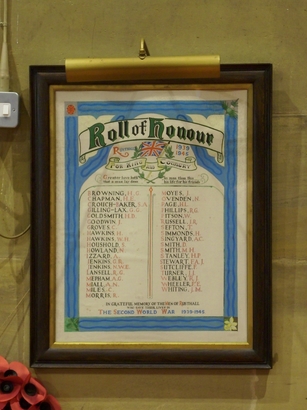 Roll of Honour
1939
1945
For King and Country
Greater love hath no man than this
that a man lay down his life for his friends
BROWNING, H.G.
CHAPMAN, H.E.
GOODWIN, J.
GROVES, L.
HAWKINS, H.
HAWKINS, W.H.
HOUSHOLD, J.
HOWLAND, N.
IZZARD, A.
JENKINS, G.B.
JENKINS, N.W.E.
LANSELL, R.G.
NIALL, A.N.
MILES, C.
MORRIS, R.
NOYES, J.
OVENDEN, H.
PAGE, H.L.
PHILLIPS, E.G.
PITSON, W.
RUSSELL, J.R.
SEFTON, T.
SIMMONDS, H.
SINGYARD, A.C.
SMITH, D.
SMITH, M.H.
STANLEY, H.F.
STEWART, D.A.I.
SUTCLIFFE, T.
TURNER, L.J.
WEBLEY, S.J.
WHEELER, F.E.
WHITING, J.M.
IN GRATEFUL MEMORY OF THE MEN OF
WHO GAVE THEIR LIVES IN
THE SECOND WORLD WAR 1939-1945